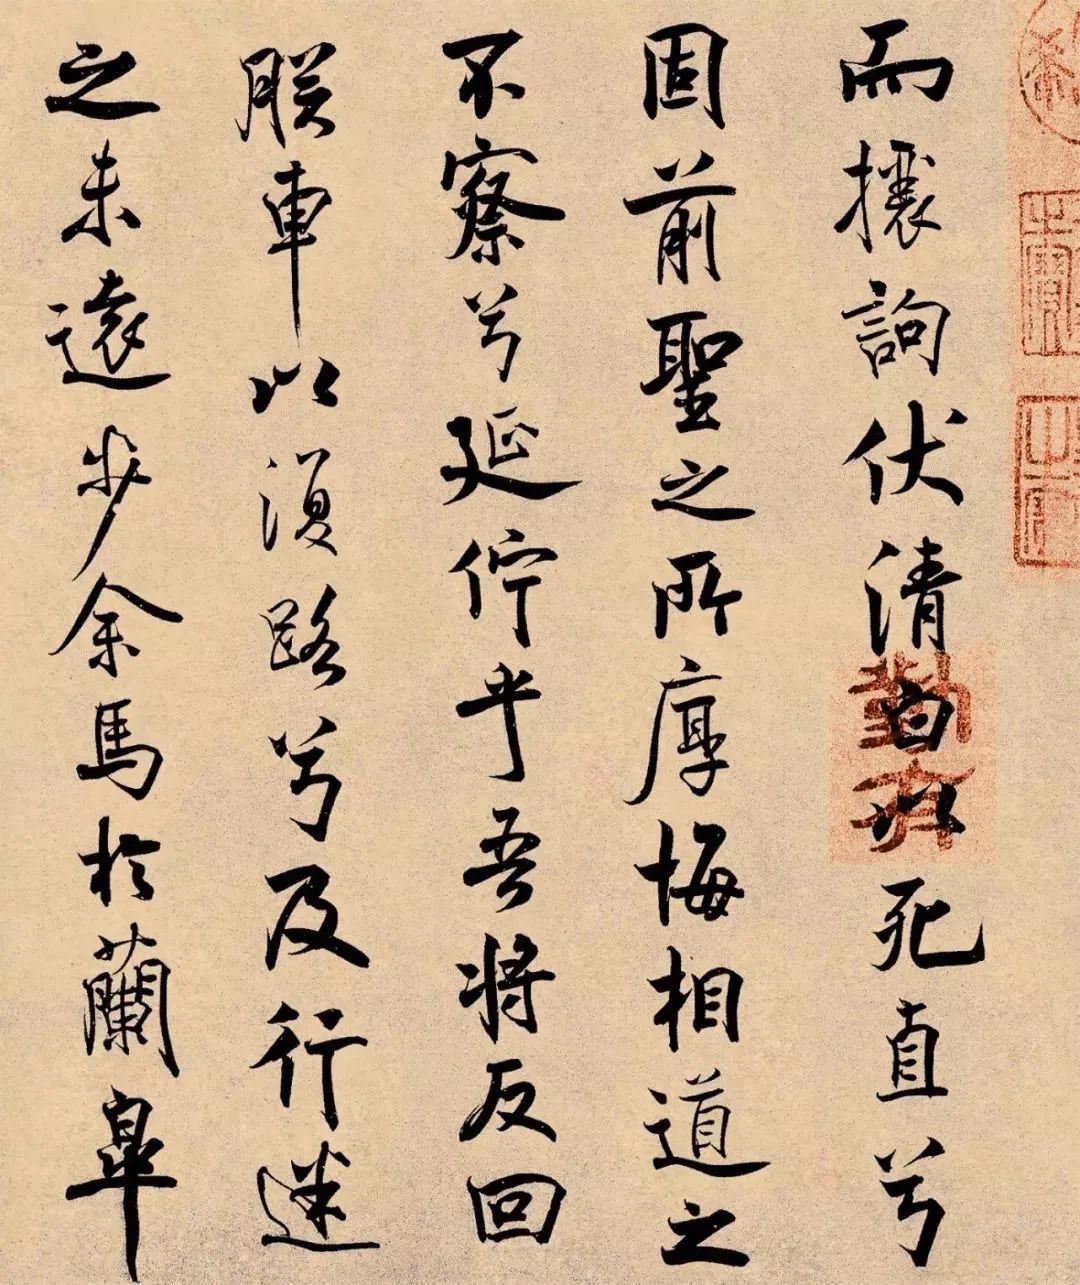 而攘詢伏清白以死直兮
固前聖之所厚悔相道之
不察兮延佇乎吾将反回
朕車以須路兮及行迷
之未遠步余馬於蘭皋